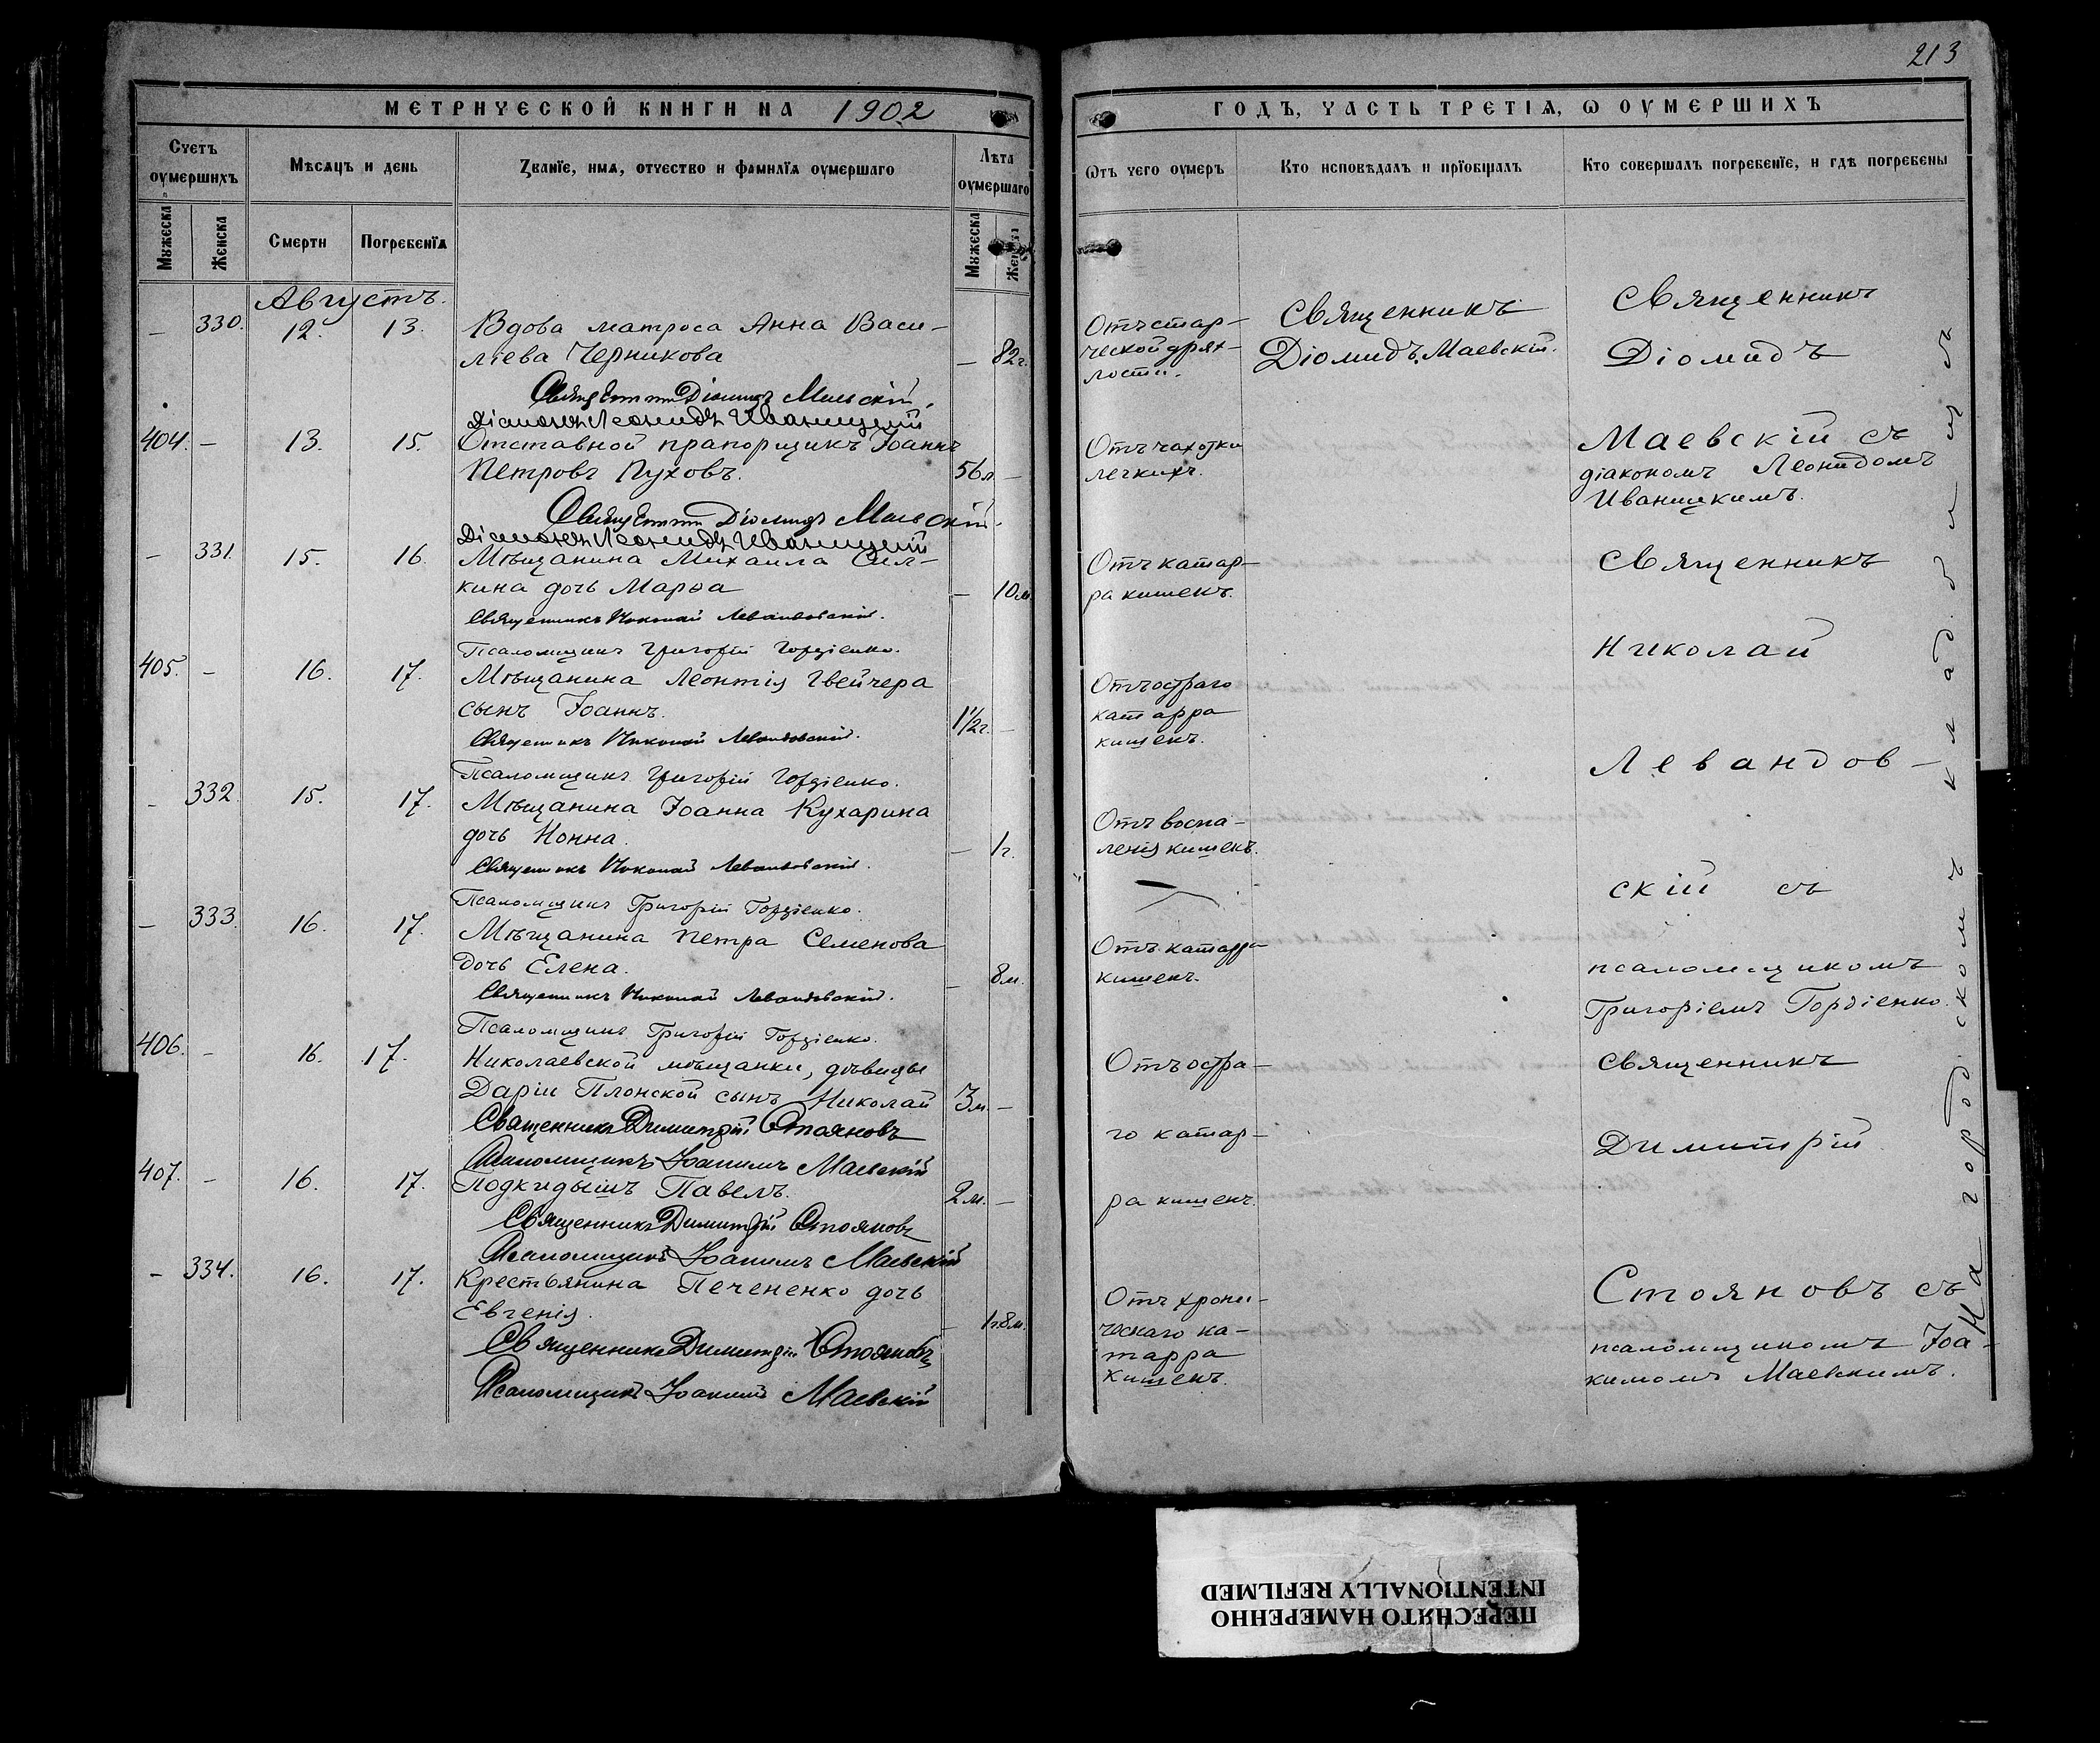 213
МЕТРИЧЕСКОЙ КНИГИ НА 1902
ГОДЪ, ЧАСТЬ ТРЕТІѦ, Ѡ ОУМЕРШИХЪ
Счетъ оумершихъ
Мѣсяцъ и день
Званіе, имя, отчество и фамилія оумершаго
Лѣта оумершаго
Ѿтъ чего оумеръ
Кто исповѣдалъ и пріобщалъ
Кто совершалъ погребеніе, и гдѣ погребены
Мужеска
Женска
Смерти
Погребенія
Мужеска
Женска
Августъ.
– 330. 12. 13. Вдова матроса Анна Васи-
ліева Черникова – 82 г.
Діомидъ Маевскій.
Діаконъ Леонидъ Иваницкій
Отъ стар-
ческой дрях-
лости.
Священникъ
Діомидъ Маевскій.
404. – 13. 15. Отставной прапорщикъ Іоаннъ
Петровъ Пуховъ. 56 л. –
Діомидъ Маевскій.
Діаконъ Леонидъ Иваницкій
Отъ чахотки
легкихъ.
Священникъ
Діомидъ
Маевскій съ
діакономъ Леонидомъ
Иваницкимъ.
– 331. 15. 16. Мѣщанина Михаила Сил-
кина дочь Марѳа – 10 м.
Священникъ Николай Левандовскій.
Псаломщикъ Григорій Гордіенко.
Отъ катар-
ра кишекъ.
405. – 16. 17. Мѣщанина Леонтія Гвейчера
сынъ Іоаннъ. 1 1/2 г. –
Священникъ Николай Левандовскій.
Псаломщикъ Григорій Гордіенко.
Отъ остраго
катарра
кишекъ.
– 332. 15. 17. Мѣщанина Іоанна Кухарина
дочь Нонна. – 1 г.
Священникъ Николай Левандовскій.
Псаломщикъ Григорій Гордіенко.
Отъ воспа-
ленія кишекъ.
– 333. 16. 17. Мѣщанина Петра Семенова
дочь Елена. – 8 м.
Священникъ Николай Левандовскій.
Псаломщикъ Григорій Гордіенко.
Отъ катарра
кишекъ.
Священникъ
Николай
Левандов-
скій съ
псаломщикомъ
Григоріемъ Гордіенко.
406. – 16. 17. Николаевской мѣщанки, дѣвицы
Даріи Плонской сынъ Николай 3 м. –
Священникъ Димитрій Стояновъ
Псаломщикъ Іоакимъ Маевскій
407. – 16. 17. Подкидышъ Павелъ. 2 м. –
Священникъ Димитрій Стояновъ
Псаломщикъ Іоакимъ Маевскій
Отъ остра-
го катар-
ра кишекъ.
– 334. 16. 17. Крестьянина Печененко дочь
Евгенія. – 1 г. 8 м.
Священникъ Димитрій Стояновъ
Псаломщикъ Іоакимъ Маевскій
Отъ хрони-
ческаго ка-
тарра
кишекъ.
Священникъ
Димитрій
Стояновъ съ
псаломщикомъ Іоа-
кимомъ Маевскимъ.
На городскомъ кладбищѣ
ПЕРЕСНЯТО НАМЕРЕННО
INTENTIONALLY REFILMED